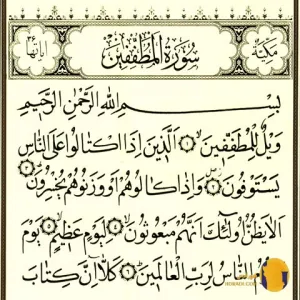 مكية
سورة المطففين
آياتها ٣٦
بِسْمِ اللهِ الرَّحْمٰنِ الرَّحِيمِ
وَيْلٌ لِلْمُطَفِّفِينَ ۝ الَّذِينَ إِذَا اكْتَالُوا عَلَى النَّاسِ
يَسْتَوْفُونَ ۝ وَإِذَا كَالُوهُمْ أَوْ وَزَنُوهُمْ يُخْسِرُونَ ۝
أَلَا يَظُنُّ أُولَٰئِكَ أَنَّهُمْ مَبْعُوثُونَ ۝ لِيَوْمٍ عَظِيمٍ ۝ يَوْمَ
النَّاسُ لِرَبِّ الْعَالَمِينَ ۝ كَلَّا إِنَّ كِتَابَ